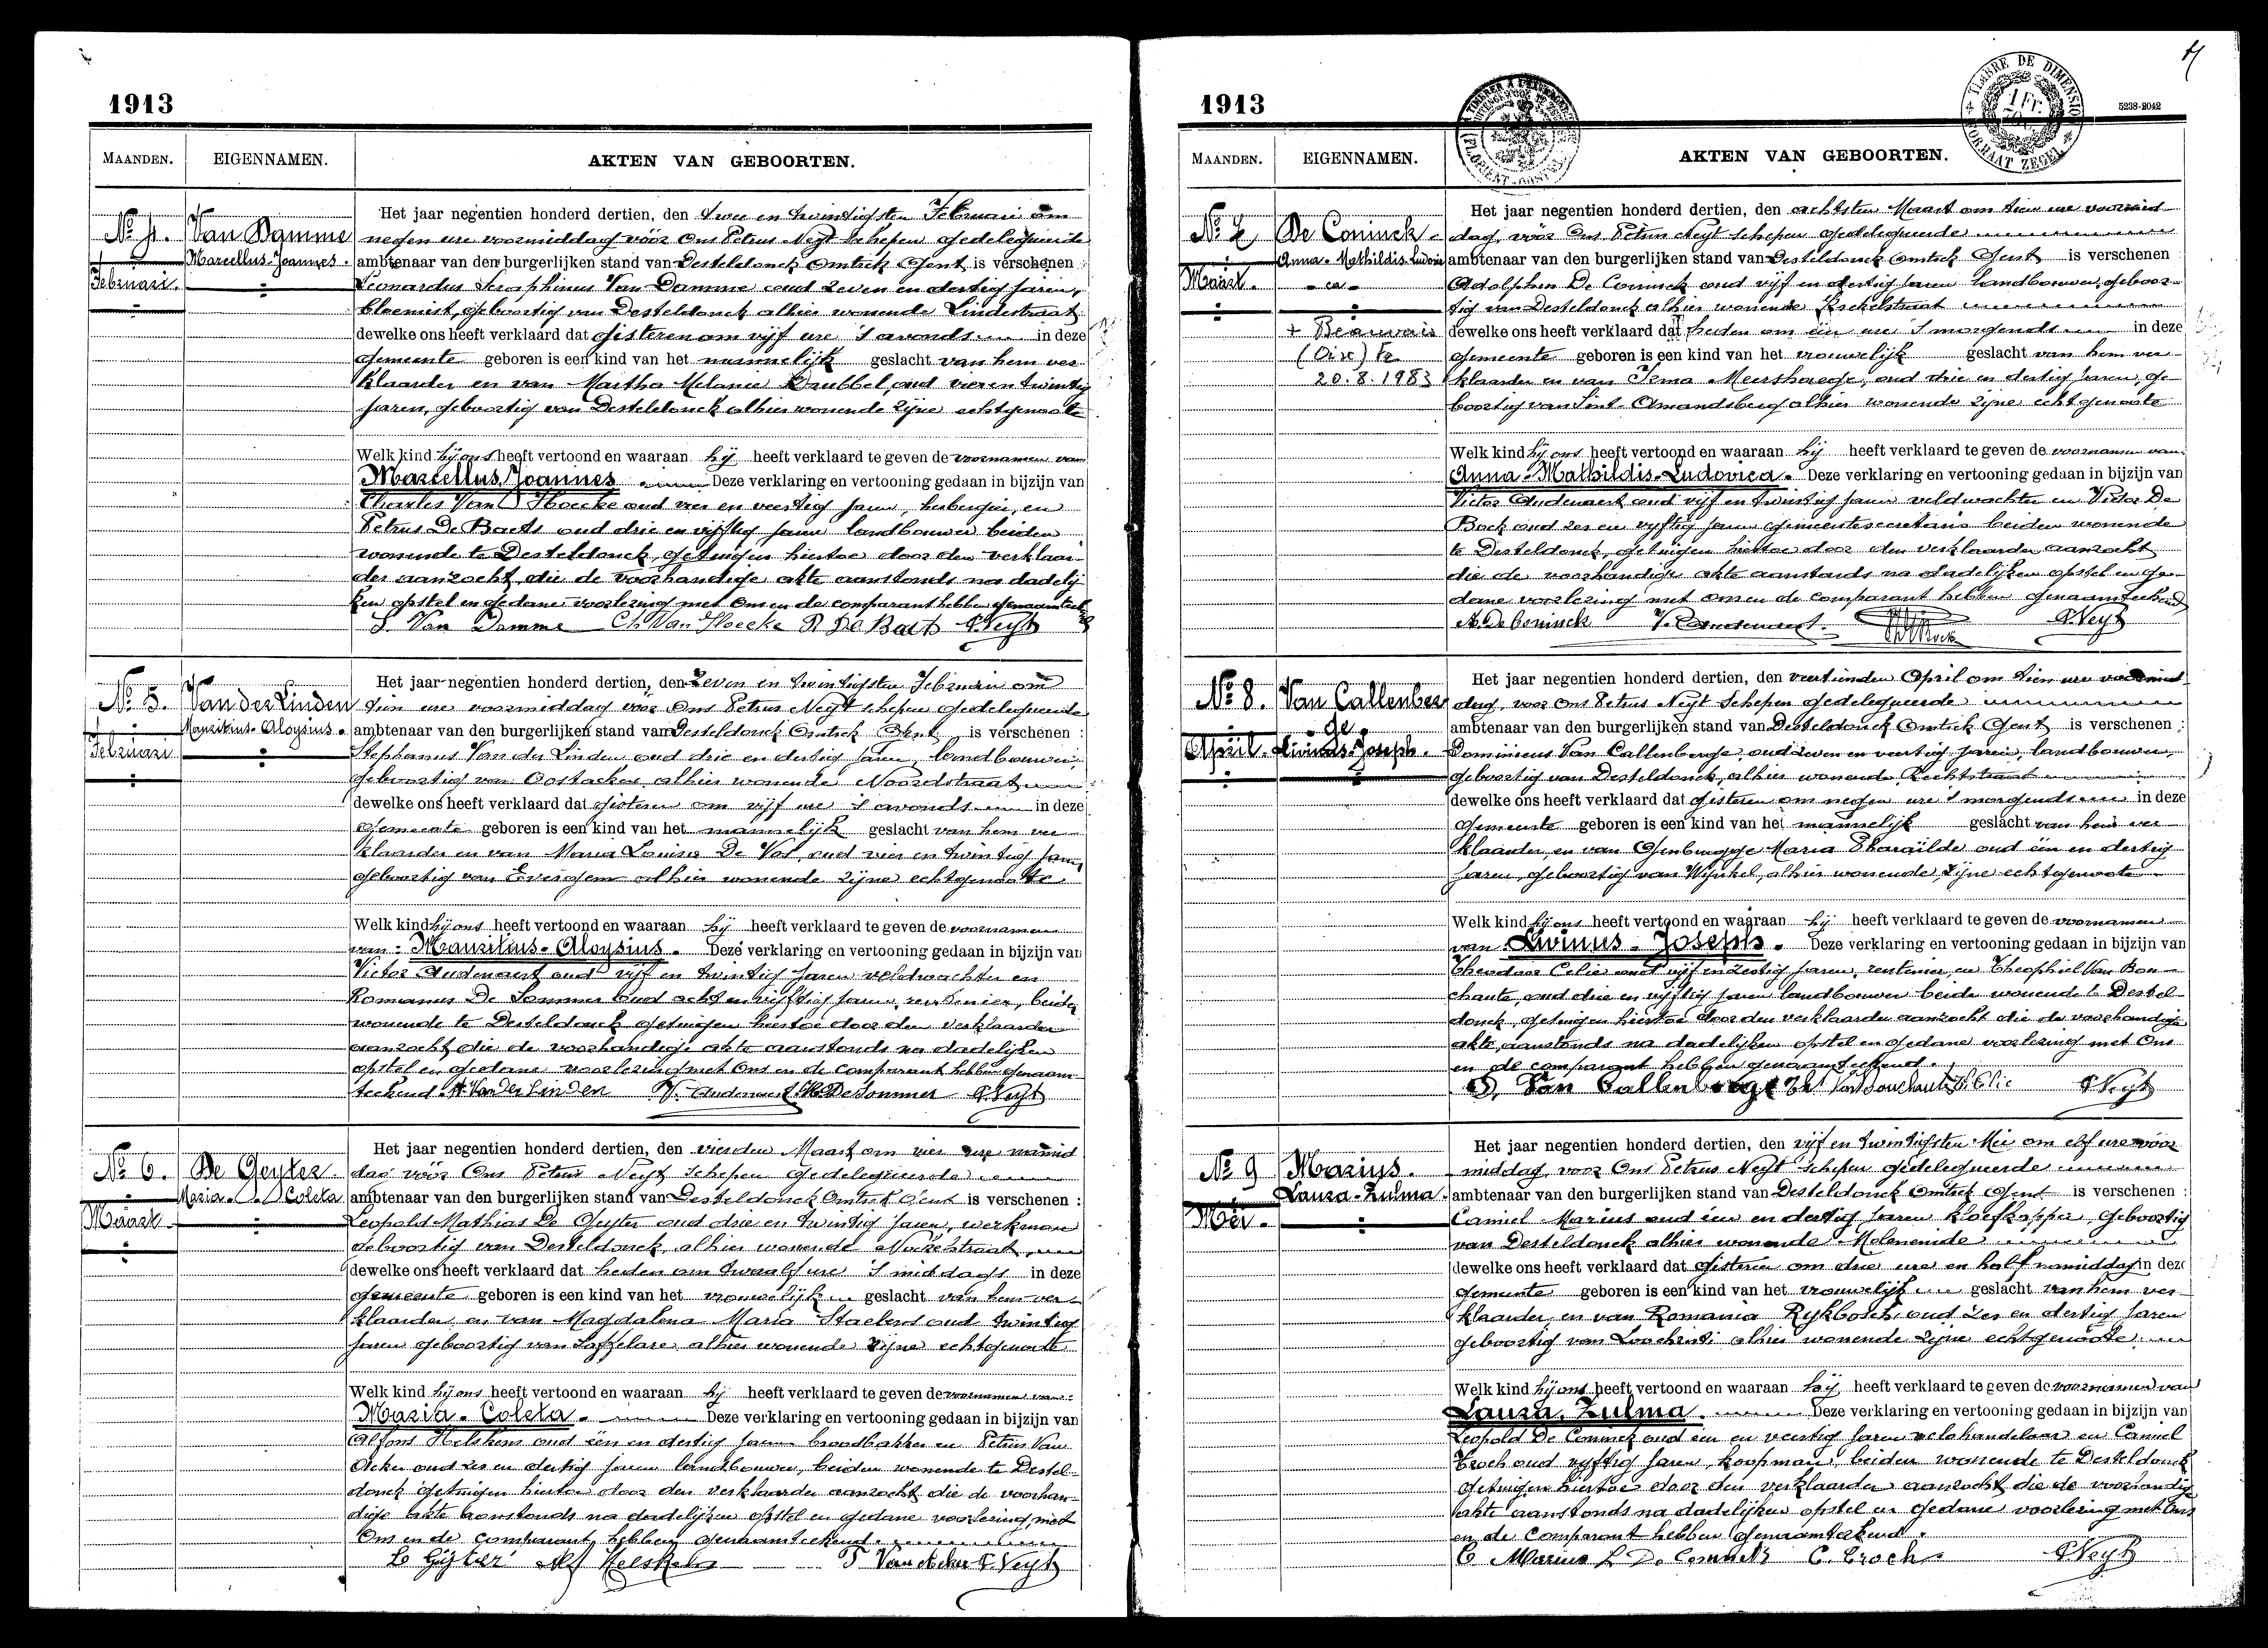 1913
MAANDEN. EIGENNAMEN. AKTEN VAN GEBOORTEN.
No 4.
Februari.
Van Damme
Marcellus-Joannes.
Het jaar negentien honderd dertien, den twee en twintigsten Februari om
negen ure voormiddag vóór Ons Petrus Neyt Schepen gedelegueerde
ambtenaar van den burgerlijken stand van Desteldonck Omtrek Gent is verschenen :
Leonardus Seraphinus Van Damme oud zeven en dertig jaren,
bloemist, geboortig van Desteldonck alhier wonende Lindestraat
dewelke ons heeft verklaard dat gisteren om vijf ure 's avonds in deze
gemeente geboren is een kind van het mannelijk geslacht van hem ver
klaarder en van Martha Melanie Drubbel oud vier en twintig
jaren, geboortig van Desteldonck alhier wonende zijne echtgenoote
Welk kind hij ons heeft vertoond en waaraan hij heeft verklaard te geven de voornamen van
Marcellus Joannes Deze verklaring en vertooning gedaan in bijzijn van
Charles Van Hoecke oud vier en veertig jaren, herbergier, en
Petrus De Baets oud drie en vijftig jaren landbouwer beiden
wonende te Desteldonck, getuigen hiertoe door den verklaar
der aanzocht, die de voorhandige akte aanstonds na dadelij
ken opstel en gedane voorlezing met Ons en de comparant hebben genaamteekend
S. Van Damme Ch. Van Hoecke P. De Baets P. Neyt
No 5.
Februari
Van der Linden
Mauritius-Aloysius.
Het jaar negentien honderd dertien, den zeven en twintigsten Februari om
tien ure voormiddag vóór Ons Petrus Neyt schepen gedelegueerde
ambtenaar van den burgerlijken stand van Desteldonck Omtrek Gent is verschenen :
Stephanus Van der Linden oud drie en dertig jaren, landbouwer
geboortig van Oostacker alhier wonende Noordstraat
dewelke ons heeft verklaard dat gisteren om vijf ure 's avonds in deze
gemeente geboren is een kind van het mannelijk geslacht van hem ver
klaarder en van Maria Louisa De Vos, oud vier en twintig jaren,
geboortig van Evergem alhier wonende zijne echtgenoote.
Welk kind hij ons heeft vertoond en waaraan hij heeft verklaard te geven de voornamen
van Mauritius-Aloysius. Deze verklaring en vertooning gedaan in bijzijn van
Victor Audenaert oud vijf en twintig jaren veldwachter en
Romanus De Sommer oud acht en vijftig jaren, rentenier, beide
wonende te Desteldonck getuigen hiertoe door den verklaarder
aanzocht die de voorhandige akte aanstonds na dadelijken
opstel en gedane voorlezing met Ons en de comparant hebben genaam
teekend. St Van der Linden V. Audenaert R. De Sommer P. Neyt
No 6.
Maart
De Geyter
Maria-Coleta
Het jaar negentien honderd dertien, den vierden Maart om vier ure namid
dag vóór Ons Petrus Neyt Schepen gedelegueerde
ambtenaar van den burgerlijken stand van Desteldonck Omtrek Gent is verschenen :
Leopold Mathias De Geyter oud drie en twintig jaren, werkman
geboortig van Desteldonck, alhier wonende
dewelke ons heeft verklaard dat heden om twaalf ure 's middags in deze
gemeente geboren is een kind van het vrouwelijk geslacht van hem ver
klaarder, en van Magdalena Maria Staelens oud twintig
jaren geboortig van Laffelare, alhier wonende zijne echtgenoote
Welk kind hij ons heeft vertoond en waaraan hij heeft verklaard te geven de voornamen van
Maria-Coleta. Deze verklaring en vertooning gedaan in bijzijn van
Alfons oud één en dertig jaren broodbakker en Petrus Van
Acker oud zes en dertig jaren landbouwer, beiden wonende te Destel-
donck getuigen hiertoe door den verklaarder aanzocht die de voorhan-
dige akte aanstonds na dadelijken opstel en gedane voorlezing met
Ons en de comparant hebben genaamteekend.
P Van Acker P. Neyt
1913
5238-2042
TIMBRE DE DIMENSION
1 Fr.
MAANDEN. EIGENNAMEN. AKTEN VAN GEBOORTEN.
No 7
Maart.
De Coninck.
Anna-Mathildis-Ludovica
+ Beauvais
(Oise) Fr
20.8.1983
Het jaar negentien honderd dertien, den achtsten Maart om tien ure voormid
dag, vóór Ons Petrus Neyt schepen gedelegueerde
ambtenaar van den burgerlijken stand van Desteldonck Omtrek Gent is verschenen
Adolphus De Coninck oud vijf en dertig jaren landbouwer, geboor
tig van Desteldonck alhier wonende
dewelke ons heeft verklaard dat heden om één ure 's morgends in deze
gemeente geboren is een kind van het vrouwelijk geslacht van hem ver
klaarder en van Irma Meerschaege, oud drie en dertig jaren, ge-
boortig van Sint-Amandsberg alhier wonende zijne echtgenoote
Welk kind hij ons heeft vertoond en waaraan hij heeft verklaard te geven de voornamen van
Anna-Mathildis-Ludovica. Deze verklaring en vertooning gedaan in bijzijn van
Victor Audenaert oud vijf en twintig jaren veldwachter en Victor De
Bock oud zes en vijftig jaren gemeentesecretaris beiden wonende
te Desteldonck, getuigen hiertoe door den verklaarder aanzocht
die de voorhandige akte aanstonds na dadelijken opstel en ge-
dane voorlezing met Ons en de comparant hebben genaamteekend
A. De Coninck V. Audenaert. P. Neyt
No 8.
April.
Van Callenber
ge
Livinus-Joseph.
Het jaar negentien honderd dertien, den veertienden April om tien ure voormid
dag, voor Ons Petrus Neyt Schepen gedelegueerde
ambtenaar van den burgerlijken stand van Desteldonck Omtrek Gent is verschenen :
Dominicus Van Callenberge oud zeven en veertig jaren, landbouwer,
geboortig van Desteldonck, alhier wonende Rechtstraat
dewelke ons heeft verklaard dat gisteren om negen ure 's morgends in deze
gemeente geboren is een kind van het mannelijk geslacht van hem ver
klaarder, en van Ghenbrugge Maria Pharaïlde oud één en dertig
jaren, geboortig van Wynkel, alhier wonende, zijne echtgenoote
Welk kind hij ons heeft vertoond en waaraan hij heeft verklaard te geven de voornamen
van Livinus-Joseph. Deze verklaring en vertooning gedaan in bijzijn van
Theodoor Celie oud vijf en zestig jaren, rentenier, en Theophiel Van Bou-
chaute, oud drie en vijftig jaren landbouwer beide wonende te Destel-
donck, getuigen hiertoe door den verklaarder aanzocht die de voorhandige
akte, aanstonds na dadelijken opstel en gedane voorlezing met Ons
en de comparant hebben genaamteekend.
D. Van Callenberge Th Van Bouchaute T. Celie P Neyt
No 9
Mei.
Marius.
Laura-Zulma.
Het jaar negentien honderd dertien, den vijf en twintigsten Mei om elf ure vóór
middag, voor Ons Petrus Neyt schepen gedelegueerde
ambtenaar van den burgerlijken stand van Desteldonck Omtrek Gent is verschenen :
Camiel Marius oud één en dertig jaren kloefkapper, geboortig
van Desteldonck alhier wonende Moleneinde
dewelke ons heeft verklaard dat gisteren om drie ure en half namiddag in deze
gemeente geboren is een kind van het vrouwelijk geslacht van hem ver
klaarder, en van Romania Rykbosch, oud zes en dertig jaren
geboortig van Loochristi alhier wonende zijne echtgenoote.
Welk kind hij ons heeft vertoond en waaraan hij heeft verklaard te geven de voornamen van
Laura Zulma. Deze verklaring en vertooning gedaan in bijzijn van
Leopold De Coninck oud één en veertig jaren velohandelaar en Camiel
Croch oud vijftig jaren, koopman, beiden wonende te Desteldonck
getuigen hiertoe door den verklaarder aanzocht die de voorhandige
akte aanstonds na dadelijken opstel en gedane voorlezing met Ons
en de comparant hebben genaamteekend.
C Marius L De Coninck C. Croch P Neyt